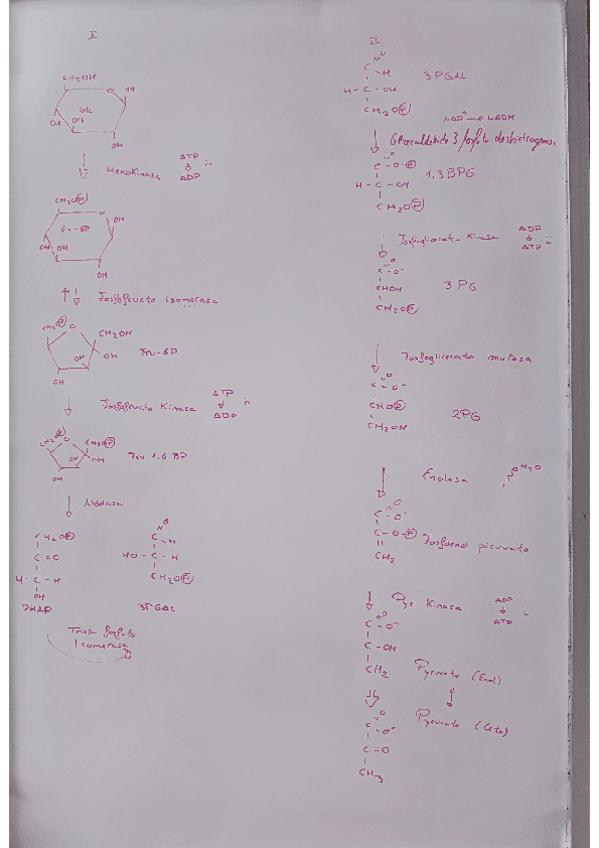 I
CH2OH
O
OH
GLC
OH
OH
OH
Hexokinasa
ATP
ADP
CH2O(P)
O
OH
Glc-6P
OH
OH
OH
Fosfofructo isomerasa
O
CH2OH
OH
OH
Fru-6P
OH
Fosfofructo Kinasa
ATP
ADP
O
CH2O(P)
OH
OH
Fru 1,6 BP
OH
Aldolasa
CH2O(P)
C=O
H-C-H
OH
DHAP
O
C H
HO-C-H
CH2O(P)
3PGAL
Triosa fosfato
Isomerasa
II
O
C H
H-C-OH
CH2O(P)
3PGAL
NAD+ → NADH
Gliceraldehido 3 fosfato deshidrogenasa
O
C-O-(P)
H-C-OH
CH2O(P)
1,3BPG
Fosfoglicerato Kinasa
ADP
ATP
O
C-O-
CHOH
CH2O(P)
3PG
Fosfoglicerato mutasa
O
C-O-
CHO(P)
CH2OH
2PG
Enolasa
H2O
O
C-O-
C-O-(P)
CH2
Fosfoenol piruvato
Pyr Kinasa
ADP
ATP
O
C-O-
C-OH
CH2
Pyruvato (Enol)
O
C-O-
C=O
CH3
Pyruvato (Ceto)